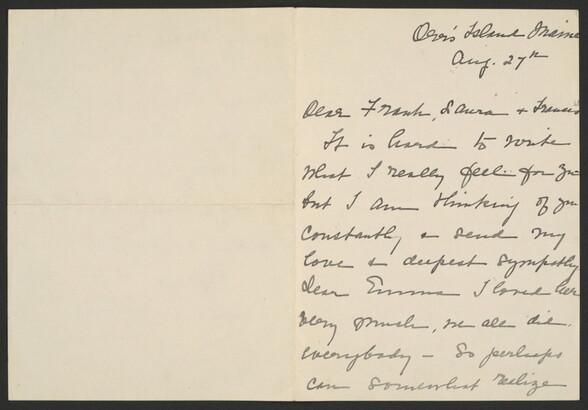 Orr's Island Maine
Aug. 27th
Dear Frank, Laura + Francis
It is hard to write
What I really feel for you
but I am thinking of you
constantly & send my
love & deepest sympathy
Dear Emma I loved her
very much, we all did.
everybody - So perhaps
can somewhat realize